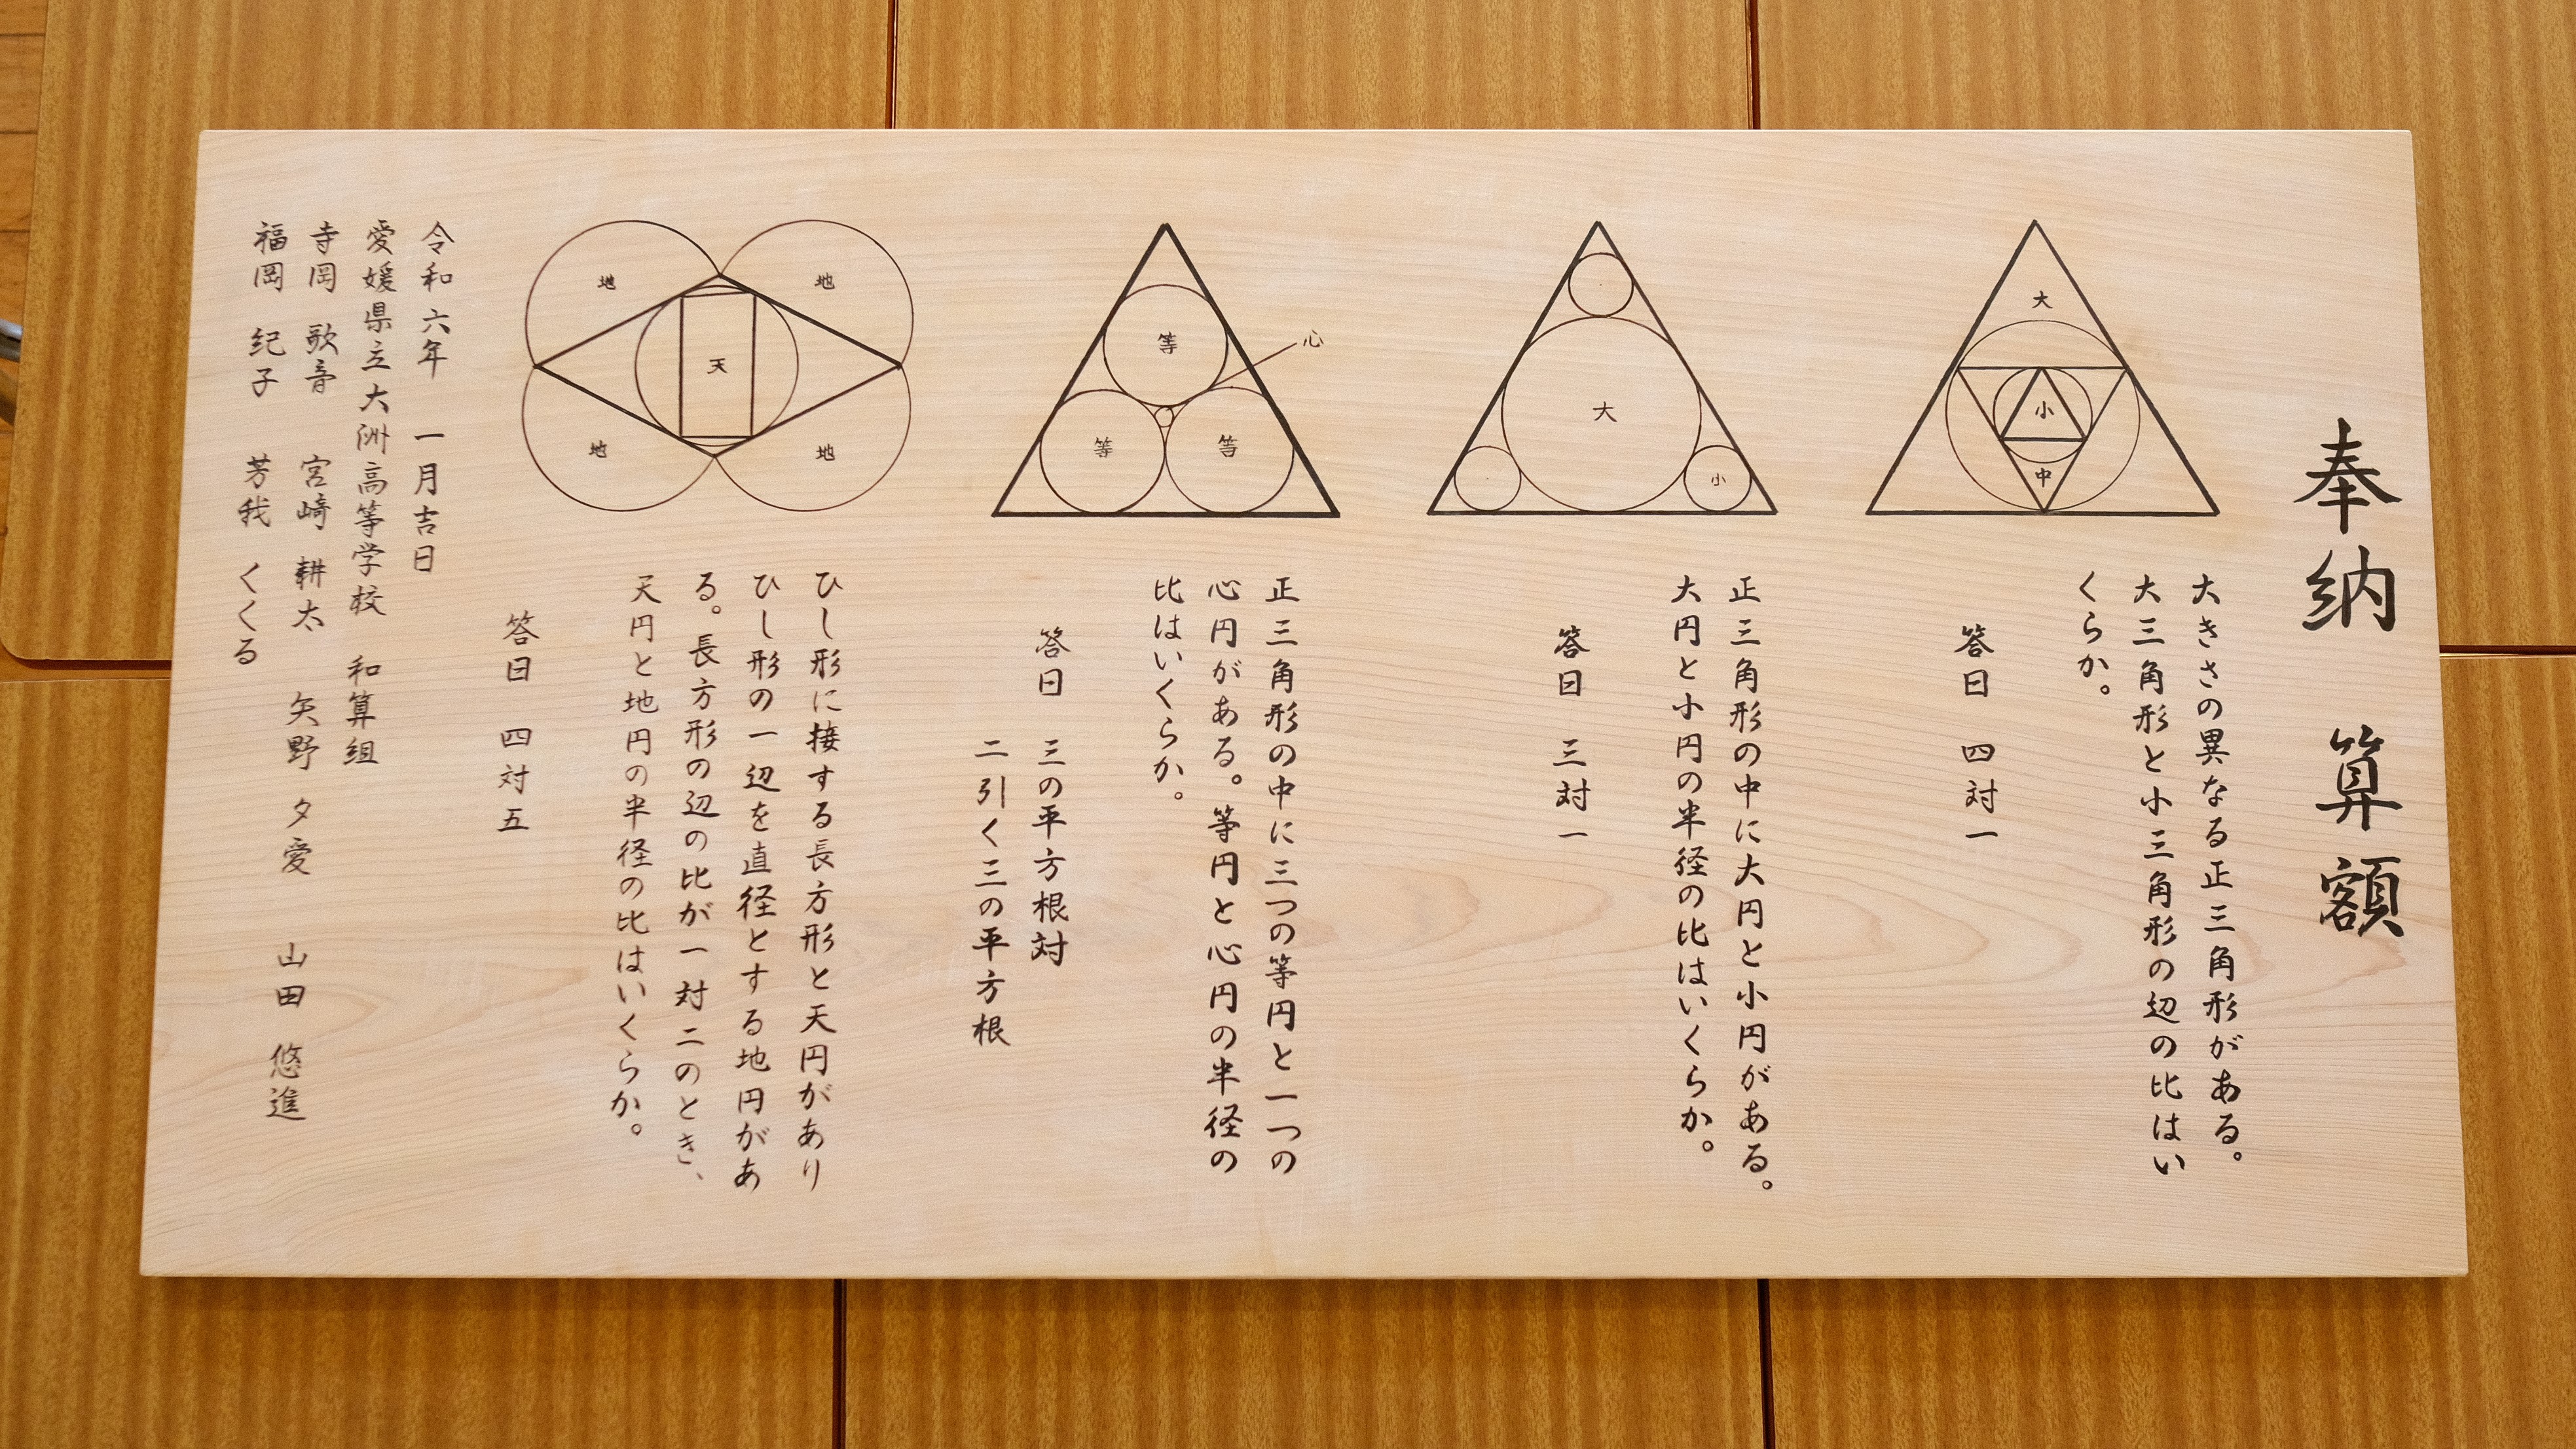 奉納 算額
大
小
中
大きさの異なる正三角形がある。
大三角形と小三角形の辺の比はい
くらか。
答曰 四対一
大
小
正三角形の中に大円と小円がある。
大円と小円の半径の比はいくらか。
答曰 三対一
心
等
等
等
正三角形の中に三つの等円と一つの
心円がある。等円と心円の半径の
比はいくらか。
答曰 三の平方根対
二引く三の平方根
地
地
天
地
地
ひし形に接する長方形と天円があり
ひし形の一辺を直径とする地円があ
る。長方形の辺の比が一対二のとき、
天円と地円の半径の比はいくらか。
答曰 四対五
令和六年 一月吉日
愛媛県立大洲高等学校 和算組
寺岡 歌音 宮崎 耕太 矢野 夕愛 山田 悠進
福岡 紀子 芳我 くくる